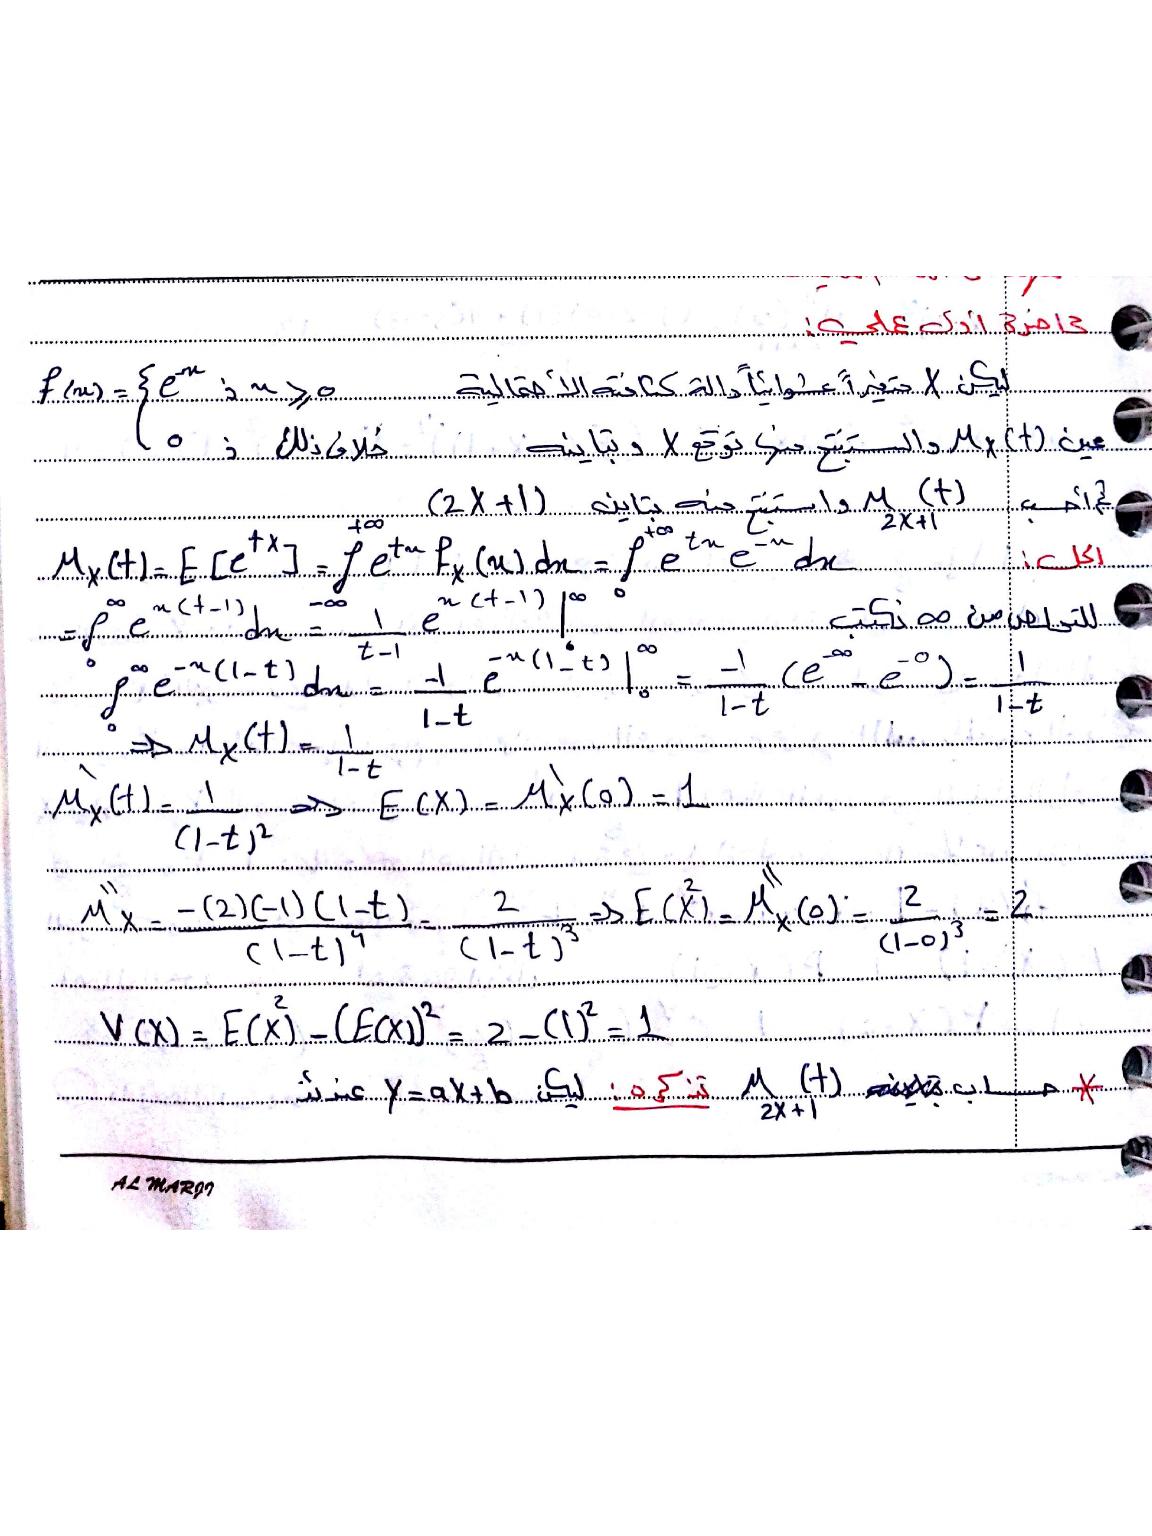 محاضرة أولى عملي:
ليكن X متغيراً عشوائياً دالة كثافته الاحتمالية f(x) = { e^-x ; x ⩾ 0
عين M_X(t) واستنتج منها توقع X وتباينه 0 ; خلاف ذلك
ثم احسب M_2X+1(t) واستنتج منه تباين (2X+1)
الحل: M_X(t) = E[e^tX] = ∫_-∞^+∞ e^tx f_X(x) dx = ∫_0^+∞ e^tx e^-x dx
= ∫_0^∞ e^x(t-1) dx = 1/(t-1) e^x(t-1) |_0^∞ للتخلص من ∞ نكتب
∫_0^∞ e^-x(1-t) dx = -1/(1-t) e^-x(1-t) |_0^∞ = -1/(1-t) (e^-∞ - e^-0) = 1/(1-t)
⇒ M_X(t) = 1/(1-t)
M'_X(t) = 1/(1-t)² ⇒ E(X) = M'_X(0) = 1
M''_X = -(2)(-1)(1-t)/(1-t)^4 = 2/(1-t)³ ⇒ E(X²) = M''_X(0) = 2/(1-0)³ = 2.
V(X) = E(X²) - (E(X))² = 2 - (1)² = 1
* حساب M_2X+1(t) تذكرة: ليكن Y = aX+b عندئذ
AL MARJI